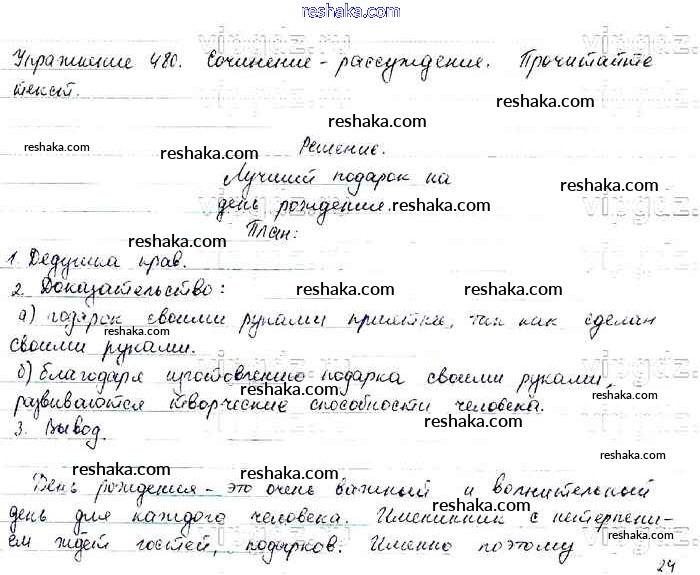 reshaka.com
Упражнение 480. Сочинение - рассуждение. Прочитайте
текст.
reshaka.com
reshaka.com reshaka.com Решение.
Лучший подарок на
reshaka.com
день рождения. reshaka.com
План:
reshaka.com
1. Дедушка прав.
2. Доказательство: reshaka.com reshaka.com
а) подарок своими руками приятнее, так как сделан
reshaka.com
своими руками.
reshaka.com
б) благодаря изготовлению подарка своими руками,
развиваются творческие способности человека.
reshaka.com
3. Вывод.
reshaka.com
reshaka.com reshaka.com
День рождения - это очень важный и волнительный
день для каждого человека. Именинник с нетерпени-
reshaka.com
ем ждёт гостей, подарков. Именно поэтому
reshaka.com
24